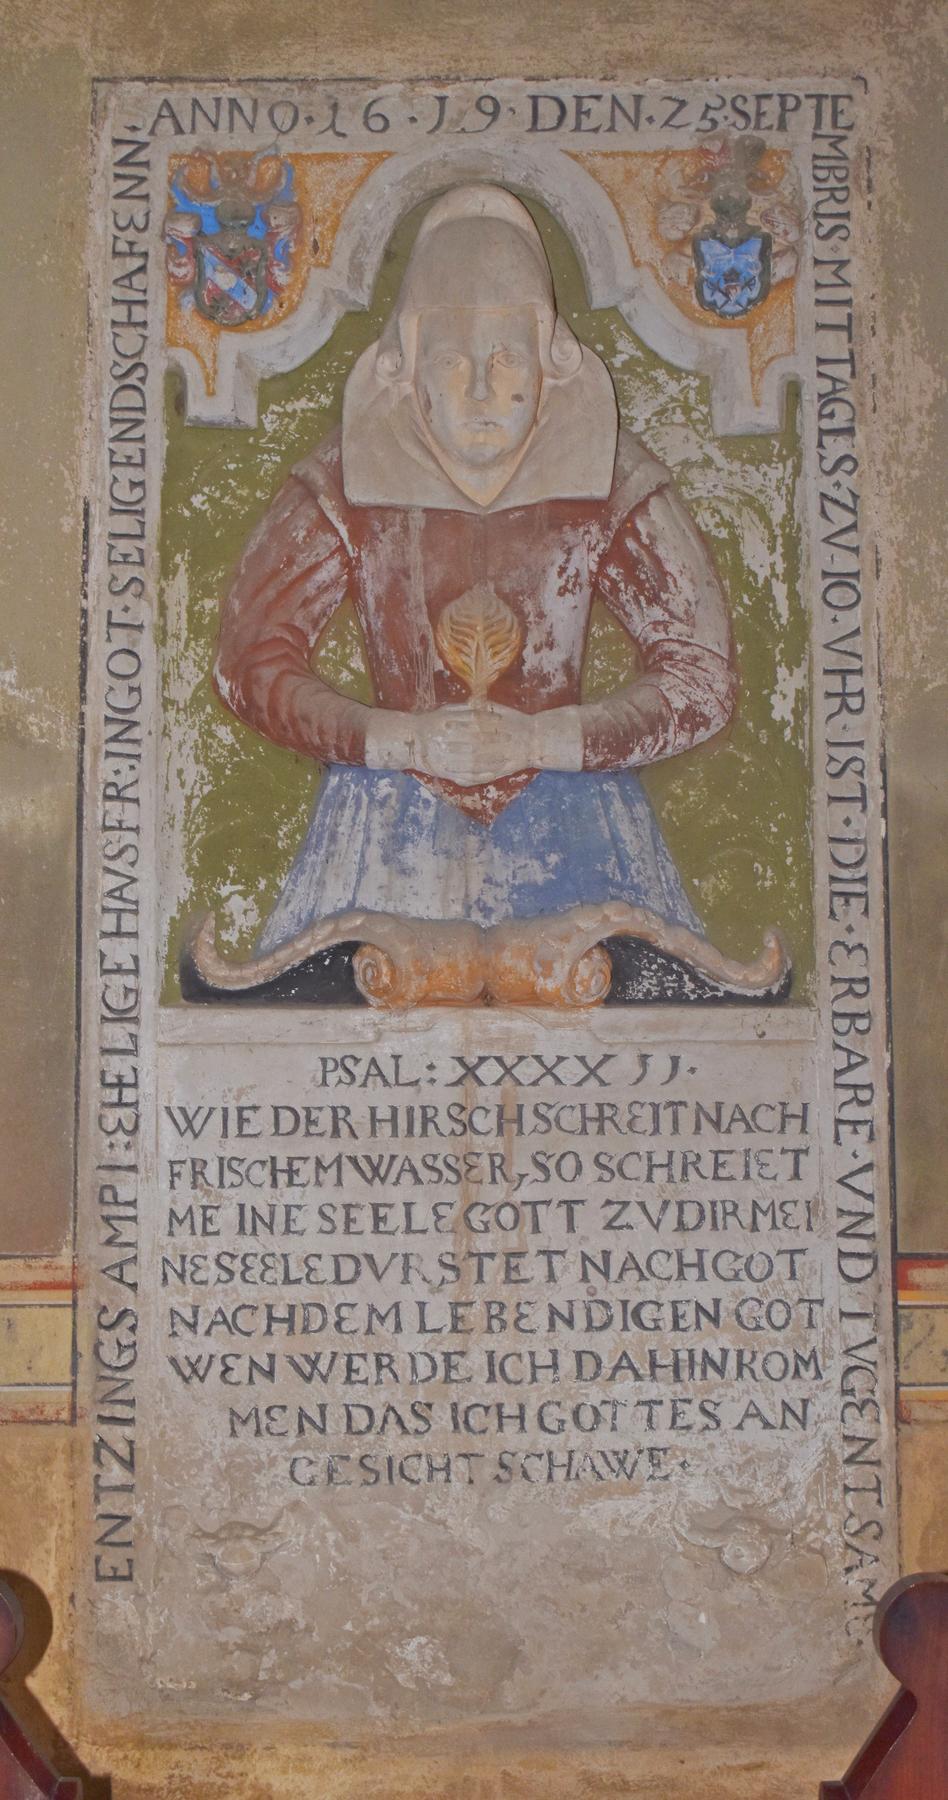 ANNO·16·19·DEN·25·SEPTE
MBRIS·MITTAGES·ZV·10·VHR·IST·DIE·ERBARE·VND TVGENTSAME·
ENTZINGS AMPI:EHELIGE HAVSFR:INGOT·SELIGENDSCHAFENN·
PSAL:XXXXJJ·
WIE DER HIRSCH SCHREIT NACH
FRISCHEM WASSER, SO SCHREIET
ME INE SEELE GOTT ZV DIR MEI
NE SEELE DVRSTET NACH GOT
NACH DEM LEBENDIGEN GOT
WEN WERDE ICH DAHIN KOM
MEN DAS ICH GOTTES AN
GESICHT SCHAWE·